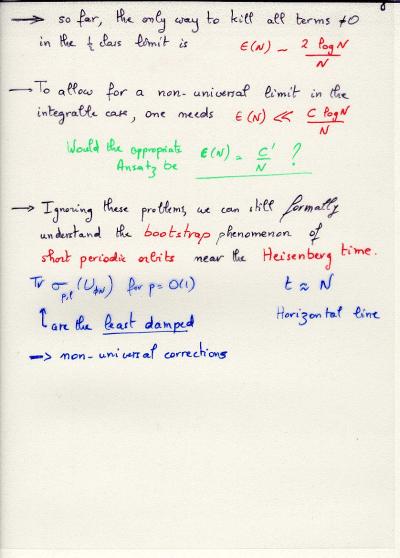 → so far, the only way to kill all terms ≠0
in the ½ class limit is ε(N) ~ 2 log N / N
→ To allow for a non-universal limit in the
integrable case, one needs ε(N) << C log N / N
Would the appropriate
Ansatz be ε(N) = C' / N ?
→ Ignoring these problems, we can still formally
understand the bootstrap phenomenon of
short periodic orbits near the Heisenberg time.
Tr σ p,t (U N) for p = O(1) t ≈ N
↑ are the least damped Horizontal line
→ non-universal corrections